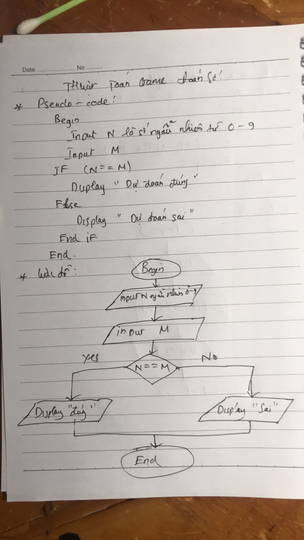 Date ............ No ............
Thuật Toán Game đoán Số
* Pseudo-code:
Begin
Input N là số ngẫu nhiên từ 0-9
Input M
IF (N==M)
Display "Dự đoán đúng"
Else
Display "Dự đoán sai"
End if
End.
* Lưu đồ:
Begin
input N ngẫu nhiên 0-9
input M
Yes
N==M
No
Display "đúng"
Display "Sai"
End